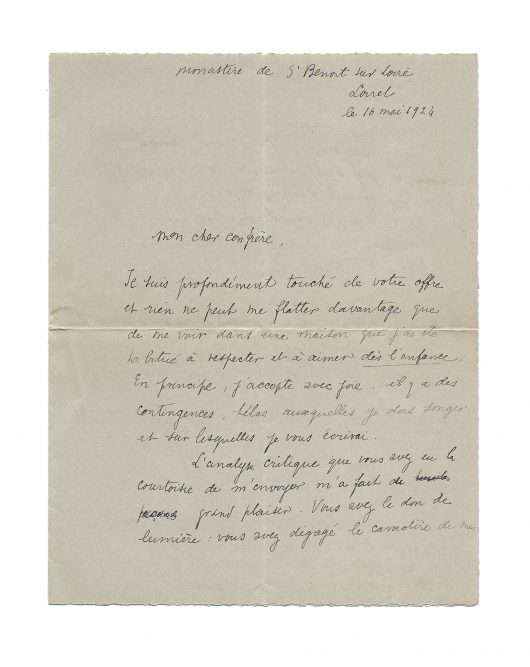 monastère de St Benoit sur Loire
Loiret
le 16 mai 1924
Mon cher confrère,
Je suis profondément touché de votre offre
et rien ne peut me flatter davantage que
de me voir dans une maison que j'ai été
habitué à respecter et à aimer dès l'enfance.
En principe, j'accepte avec joie. il y a des
contingences, hélas auxquelles je dois songer
et sur lesquelles je vous écrirai.
L'analyse critique que vous avez eu la
courtoisie de m'envoyer m'a fait de
grand plaisir. Vous avez le don de
lumière. vous avez dégagé le caractère de